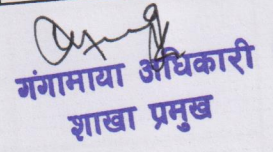 गंगामाया अधिकारी
शाखा प्रमुख